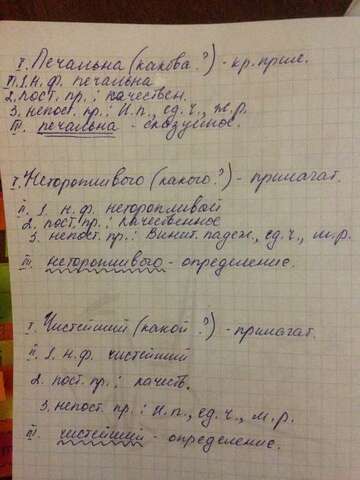 I. Печальна (какова?) - кр. прил.
II. 1. н.ф. печальна
2. пост. пр.: качествен.
3. непост. пр.: И.п., ед.ч., ж.р.
III. печальна - сказуемое.
I. Неторопливого (какого?) - прилагат.
II. 1. н.ф. неторопливый
2. пост. пр.: качественное
3. непост. пр.: Винит. падеж., ед.ч., м.р.
III. неторопливого - определение.
I. Чистейший (какой?) - прилагат.
II. 1. н.ф. чистейший
2. пост. пр.: качеств.
3. непост. пр.: И.п., ед.ч., м.р.
III чистейший - определение.